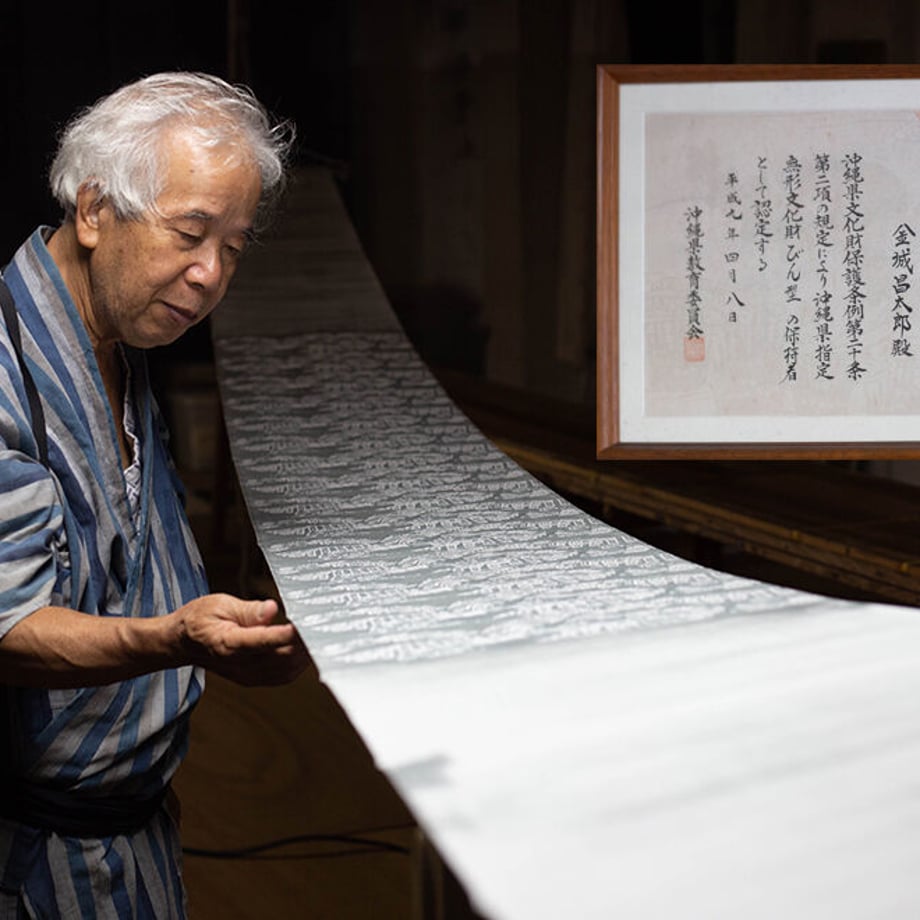 金城昌太郎殿
沖縄県文化財保護条例第二十条
第二項の規定により沖縄県指定
無形文化財びん型の保持者
として認定する
平成九年四月八日
沖縄県教育委員会